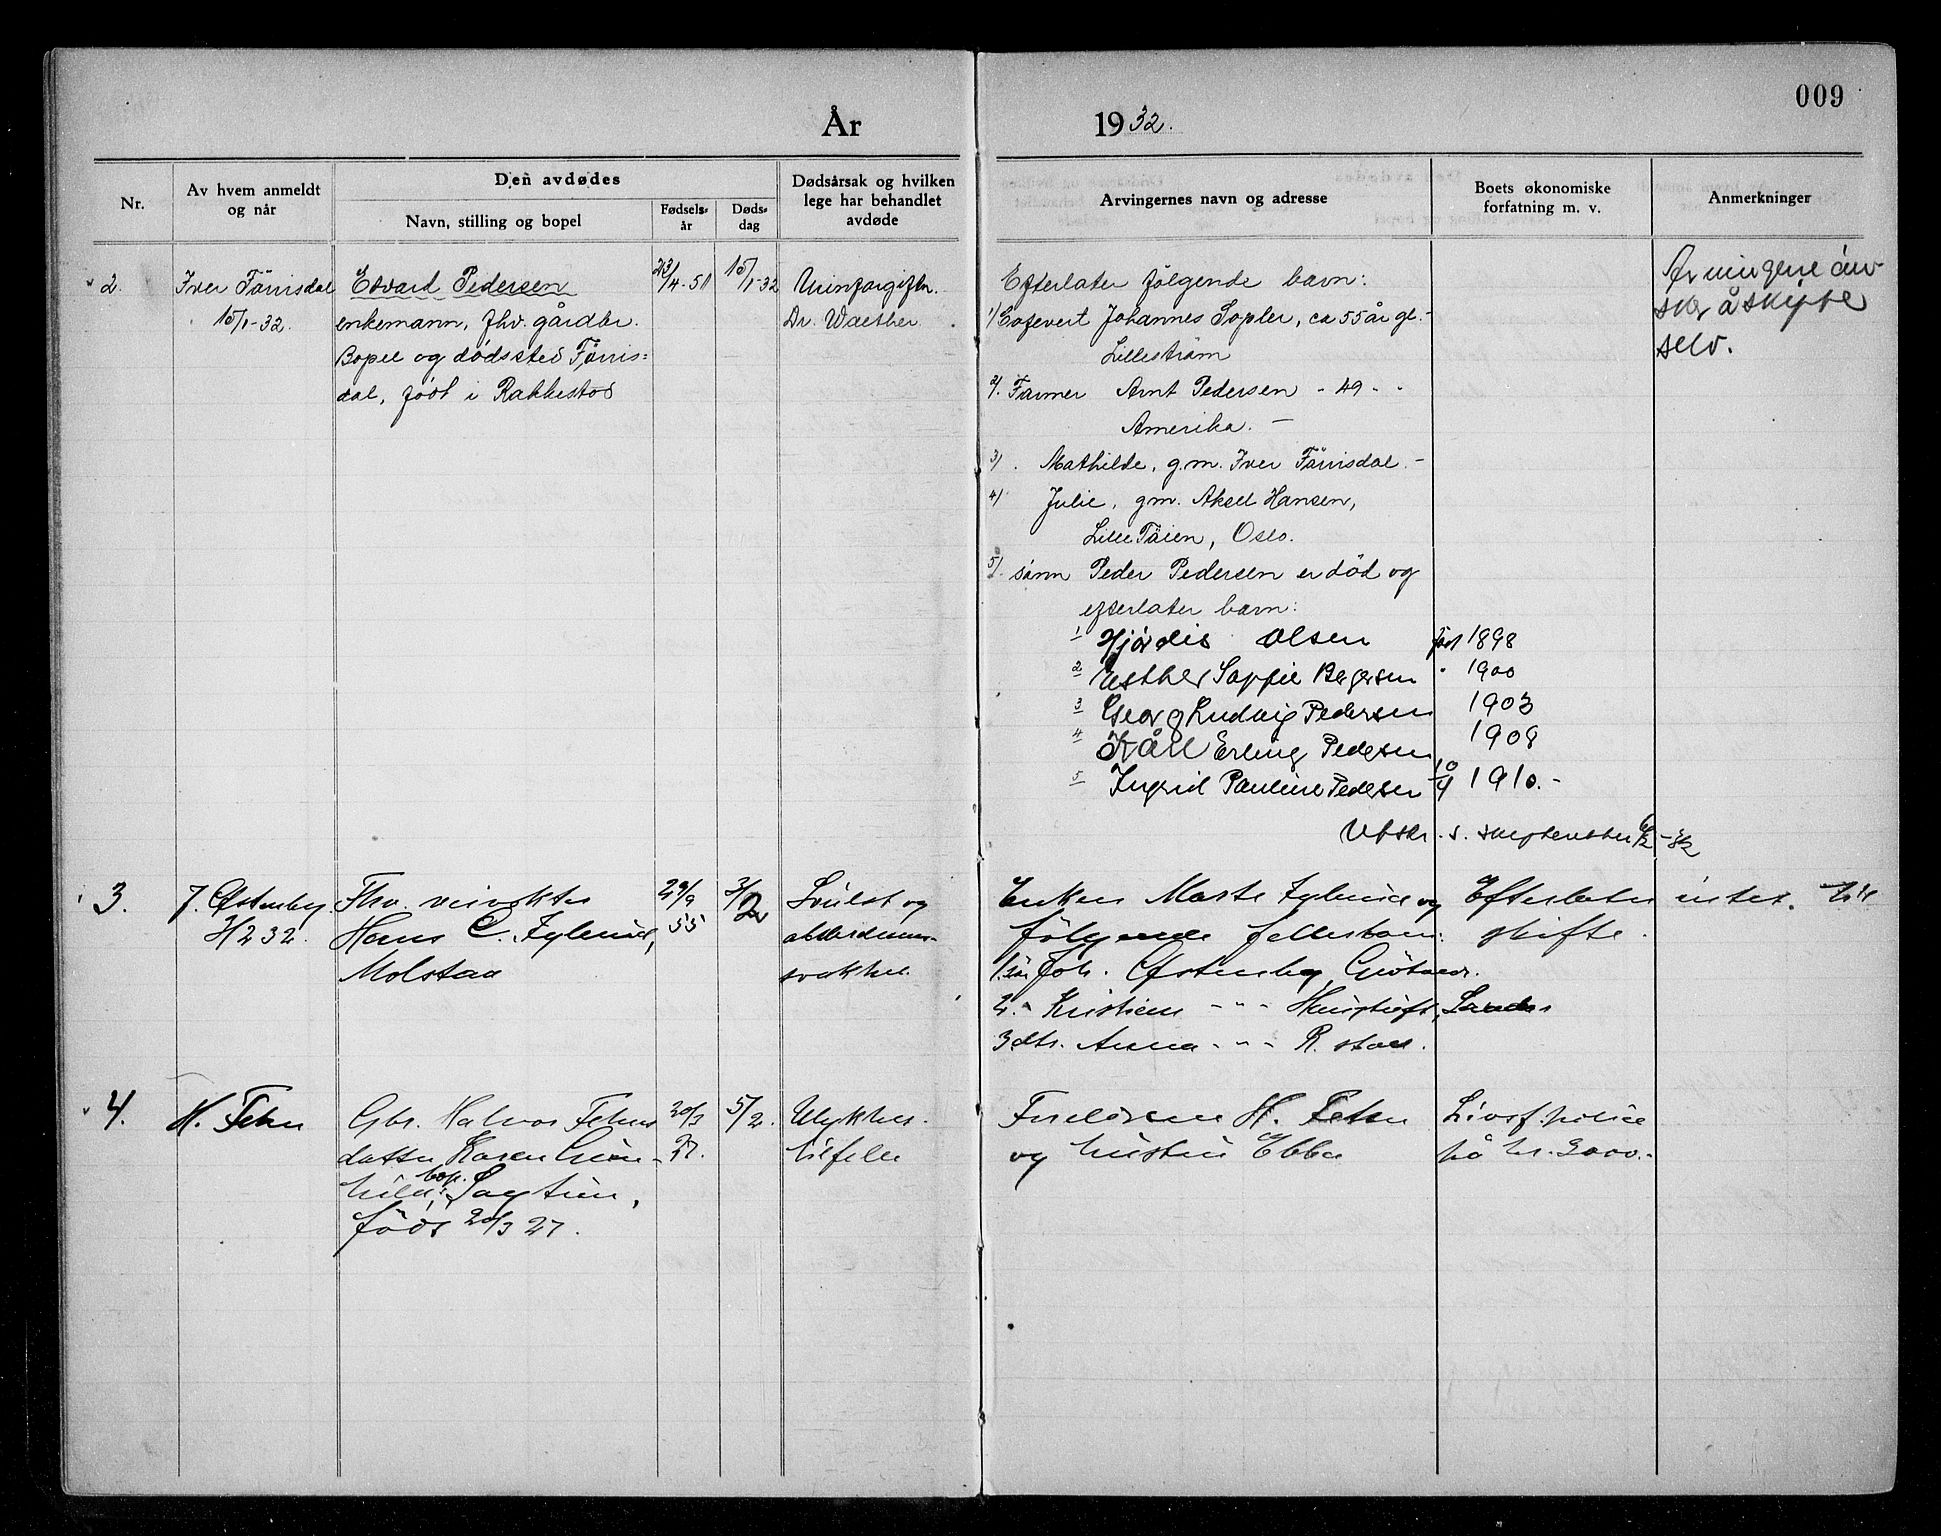 009
År 1932.
Nr.
Av hvem anmeldt og når
Den avdødes
Navn, stilling og bopel
Fødsels-år
Døds-dag
Dødsårsak og hvilken lege har behandlet avdøde
Arvingernes navn og adresse
Boets økonomiske forfatning m. v.
Anmerkninger
2.
Iver Tönnisdal
15/1-32.
Edvard Pedersen
enkemann, fhv. gårdbr.
Bopel og dødssted Tönnis=
dal, født i Rakkestad
23/4-51
15/1-32
Urinforgiftn.
Dr. Waether
Efterlater følgende barn:
1/ Johannes Sopler, ca 55 år gl.-
Lilleström
2/. Farmer Arnt Pedersen - 49 - -
Amerika. -
3/. Mathilde, g.m. Iver Tönnisdal.-
4/ Julie, gm. Aksel Hansen,
Lille Töien, Oslo.
5/. sönn Peder Pedersen er död og
efterlater barn:
1 Hjørdis Olsen født 1898
2 Esther Soffie Bergersen " 1900
3 Georg Ludvig Pedersen 1903
4 Kåre Erling Pedersen 1908
5 Ingrid Pauline Pedersen 10/4 1910.-
Utskr. s. skifteattest 6/2 -32
Arvingene øns
ker å skifte
selv.
3.
J. Østenby
3/2 32.
Fhv. veivokter
Hans C.
Molstad
29/9
55
3/2
Svulst og
alderdoms-
svakhet.
Enken Marte og
følgende fellesbarn:
1. sn Joh. Østenby,
2. " Kristian - " -
3 dtr. Anna - " - R. stad.
Efterlater intet. Intet
skifte.
4.
H. Fehn
Gbr. Halvor Fehns
datter Karen Gun-
hild, bop. Sagtun,
født 20/3 27.
20/3
27.
5/2.
Ulykkes-
tilfelle
Foreldrene H. Fehn
og hustru Ebba
Livsf. police
på kr. 3000.-